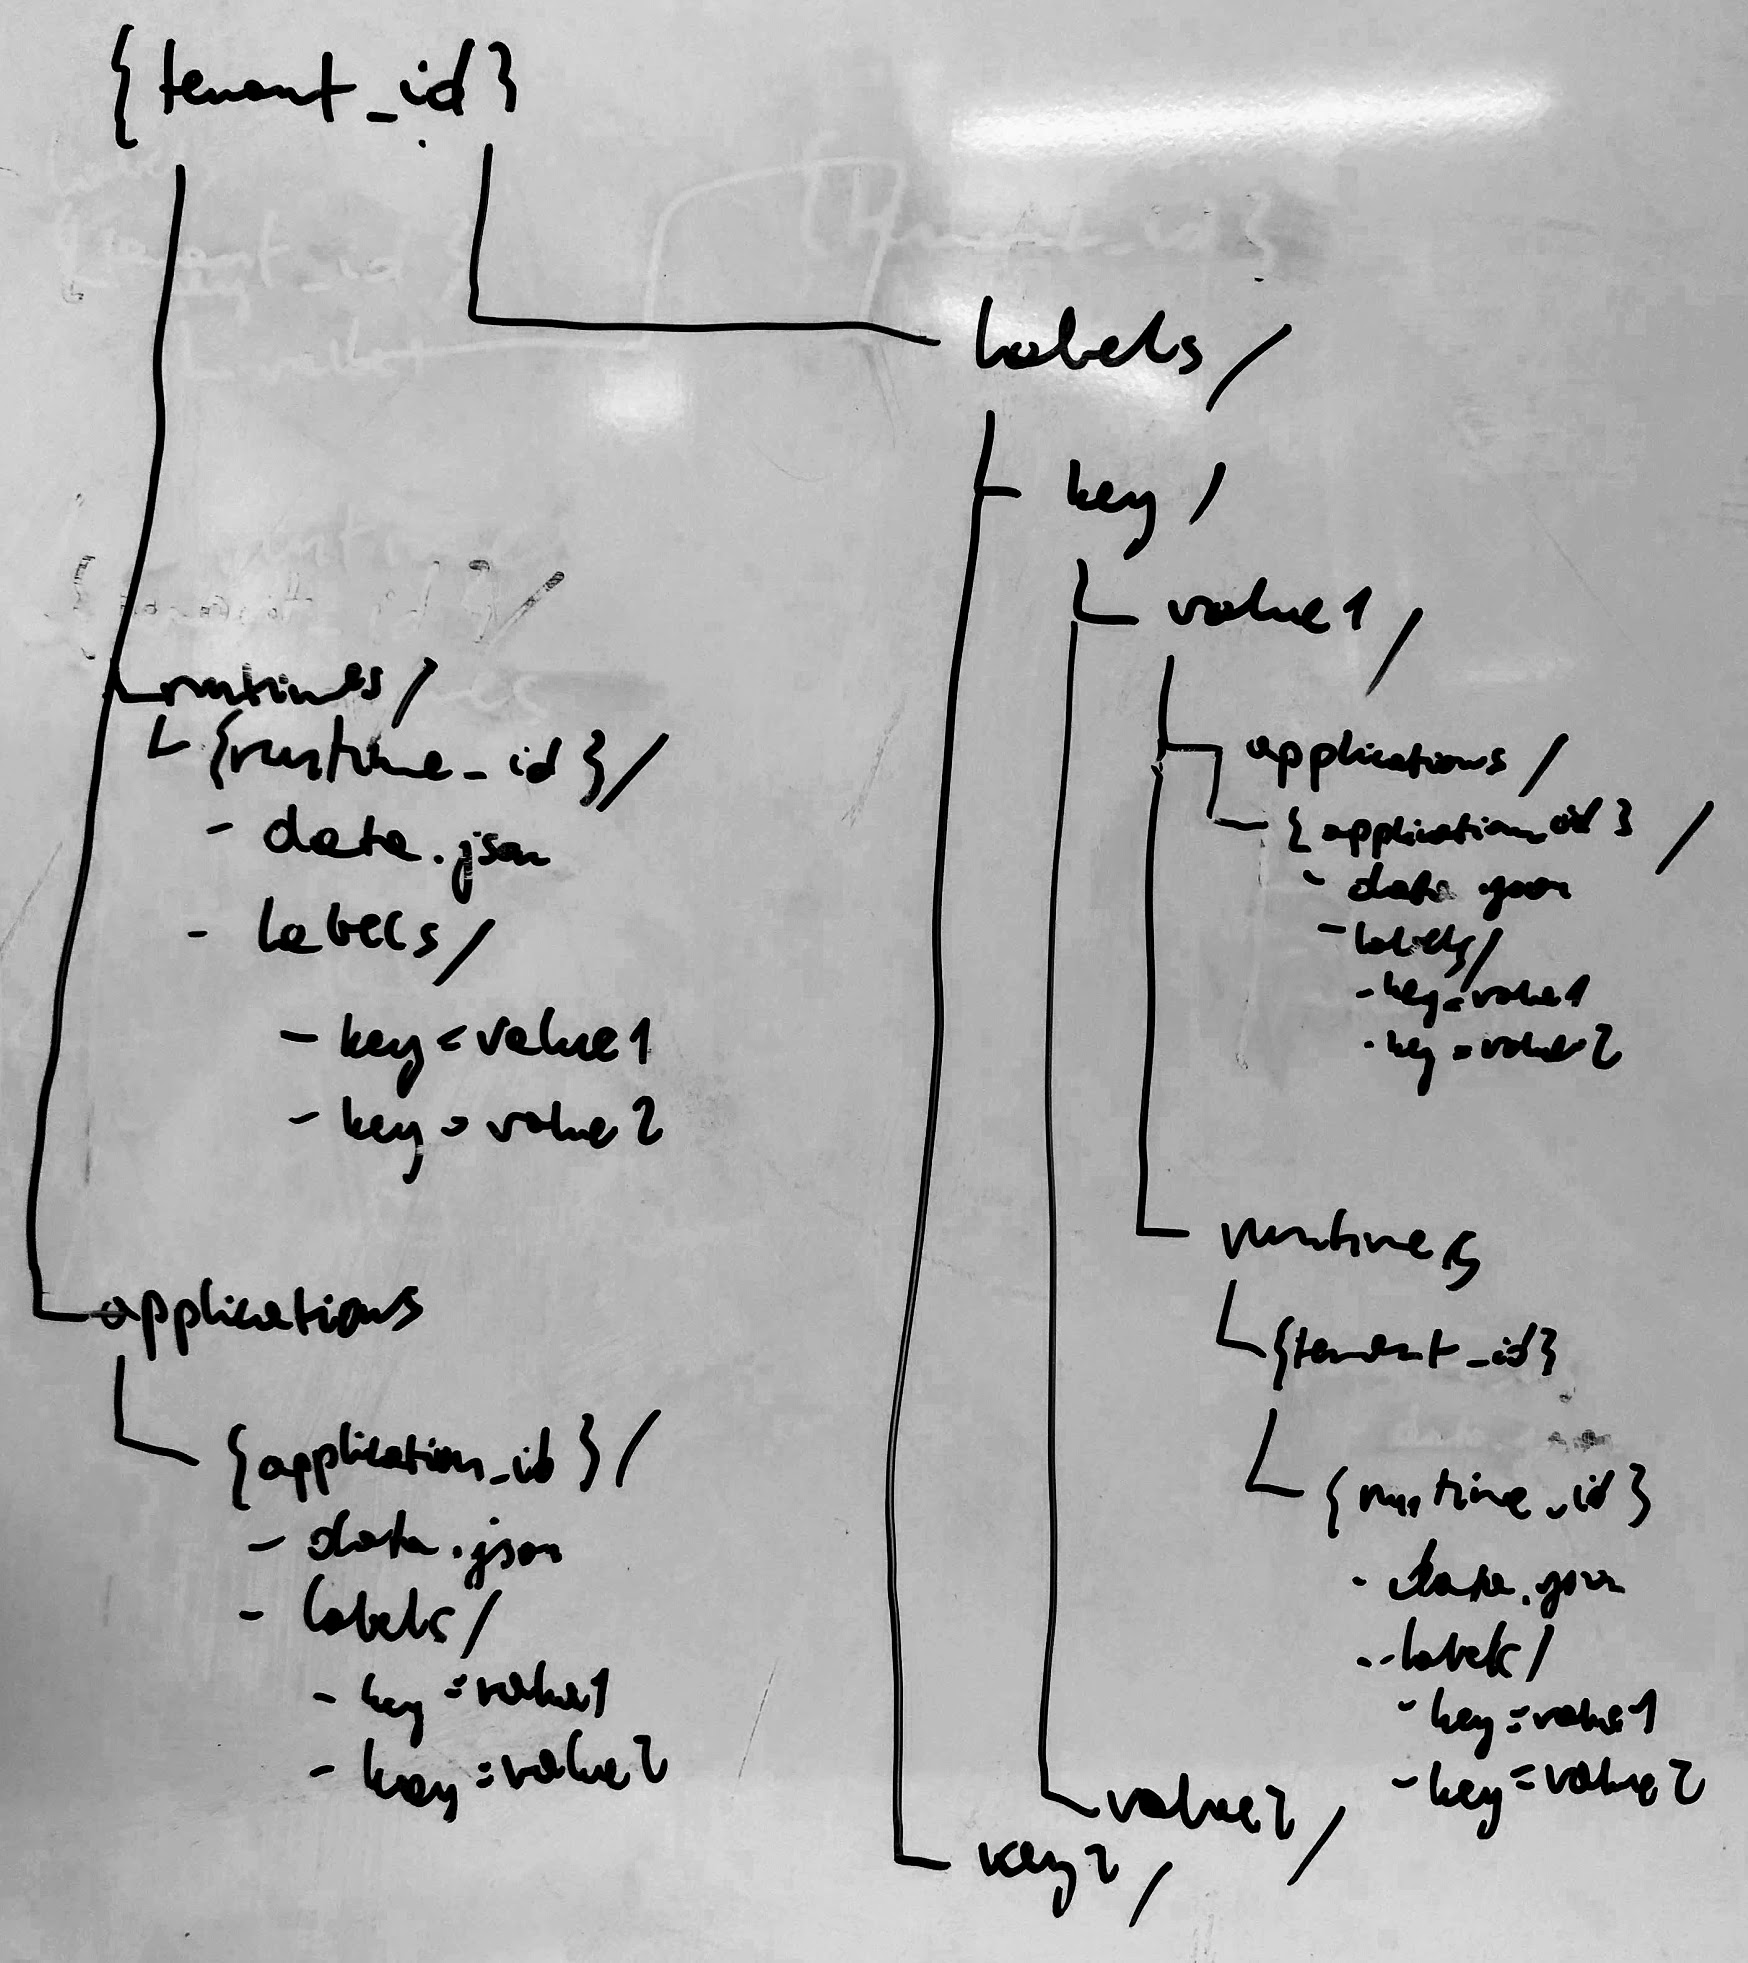 {tenant_id}
runtimes/
{runtime_id}/
- data.json
- labels/
- key=value1
- key=value2
applications
{application_id}/
- data.json
- labels/
- key=value1
- key=value2
labels/
key/
value1/
applications/
{application_id}/
- data.json
- labels/
- key=value1
- key=value2
runtimes
{tenant_id}
{runtime_id}
- data.json
- labels/
- key=value1
- key=value2
value2/
key2/